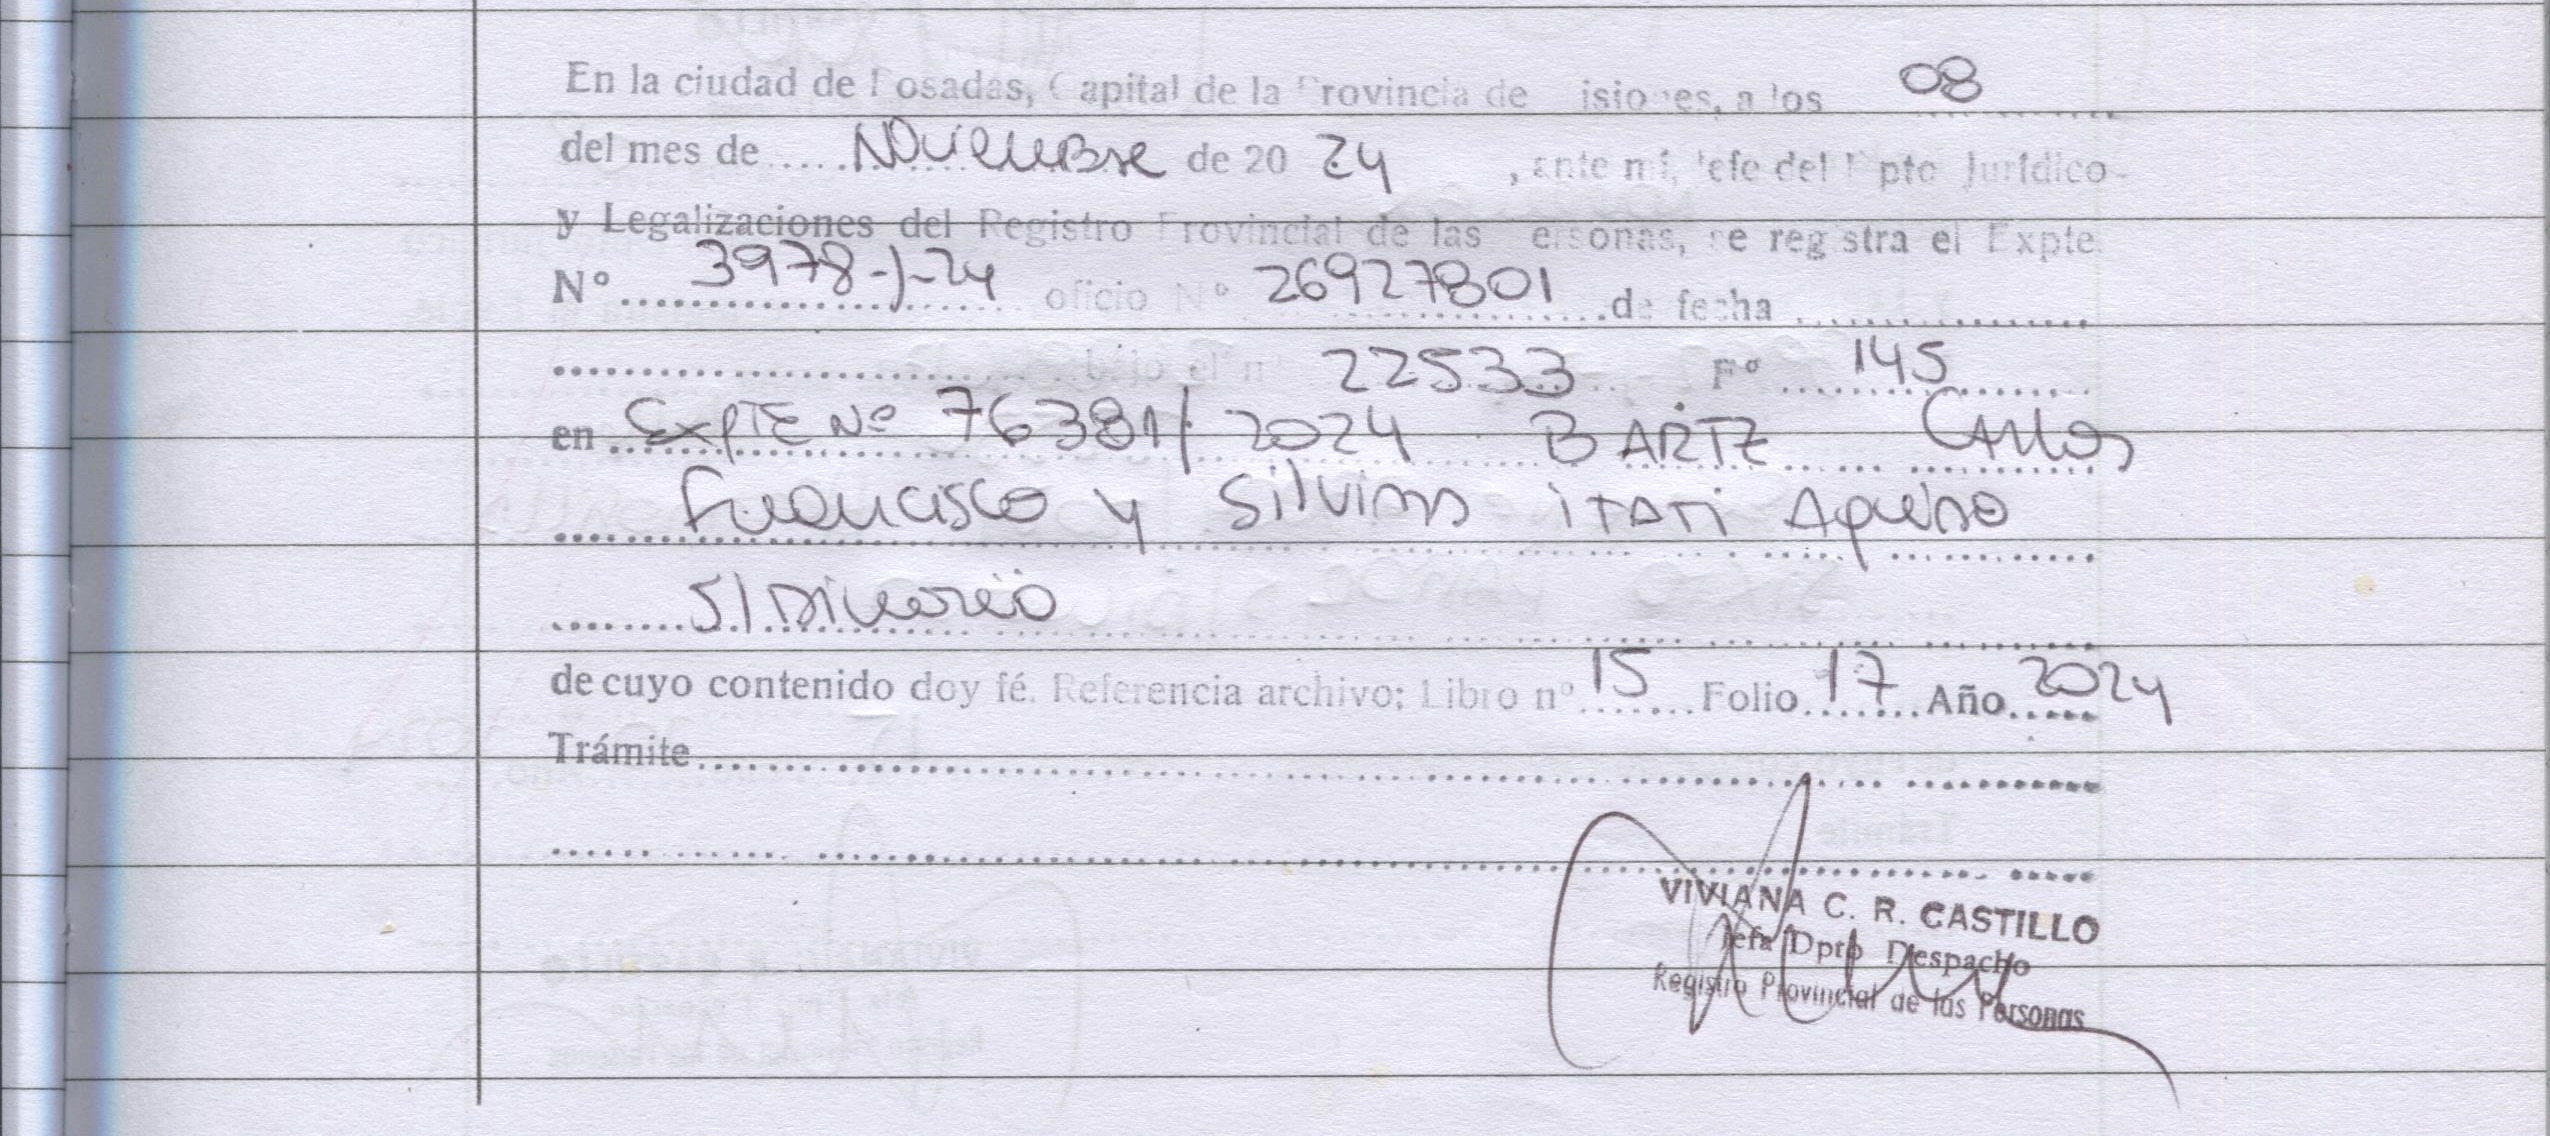 En la ciudad de Posadas, Capital de la Provincia de Misiones, a los 08
del mes de ..... Noviembre de 20 24 , ante mí, Jefe del Dpto Jurídico
y Legalizaciones del Registro Provincial de las Personas, se registra el Expte
Nº 3978-J-24 oficio Nº 26927801 de fecha ..................
........................ bajo el nº 22533 Fº 145
en Expte Nº 76381/2024 BARTZ Carlos
Francisco y Silvina itati Aquino
S/Divorcio
de cuyo contenido doy fé. Referencia archivo: Libro nº 15 Folio 17 Año 2024
Trámite
VIVIANA C. R. CASTILLO
Jefa Dpto Despacho
Registro Provincial de las Personas